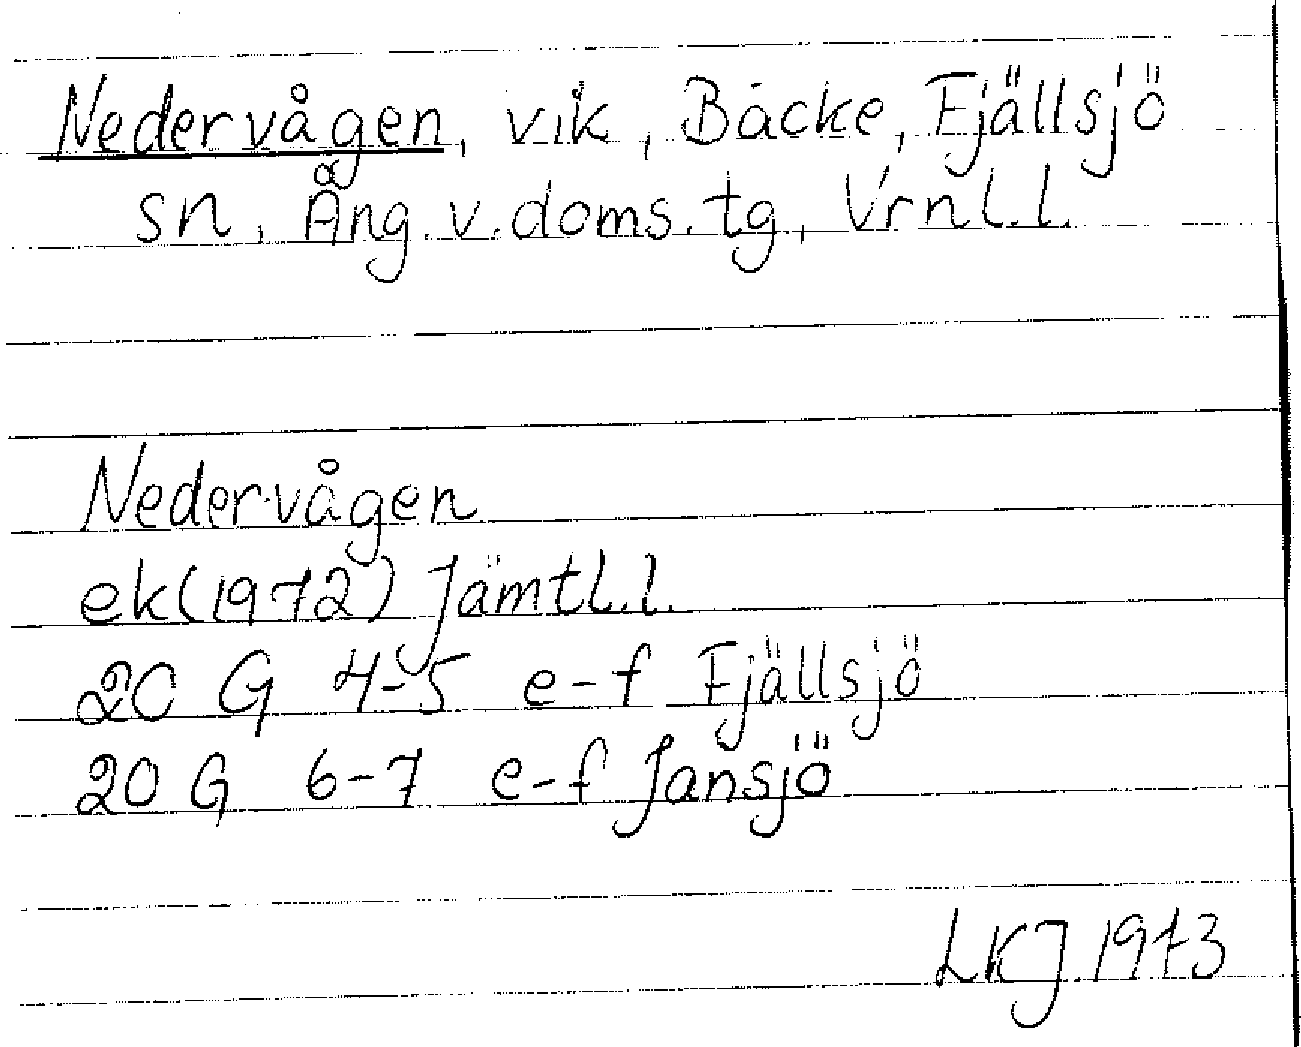 Nedervågen, vik, Backe, Fjällsjö
sn, Ång.v.doms.tg, Vrnl.l.
Nedervågen
ek(1972) Jämtl.l.
20 G 4-5 e-f Fjällsjö
20 G 6-7 e-f Jansjö
LKJ 1973